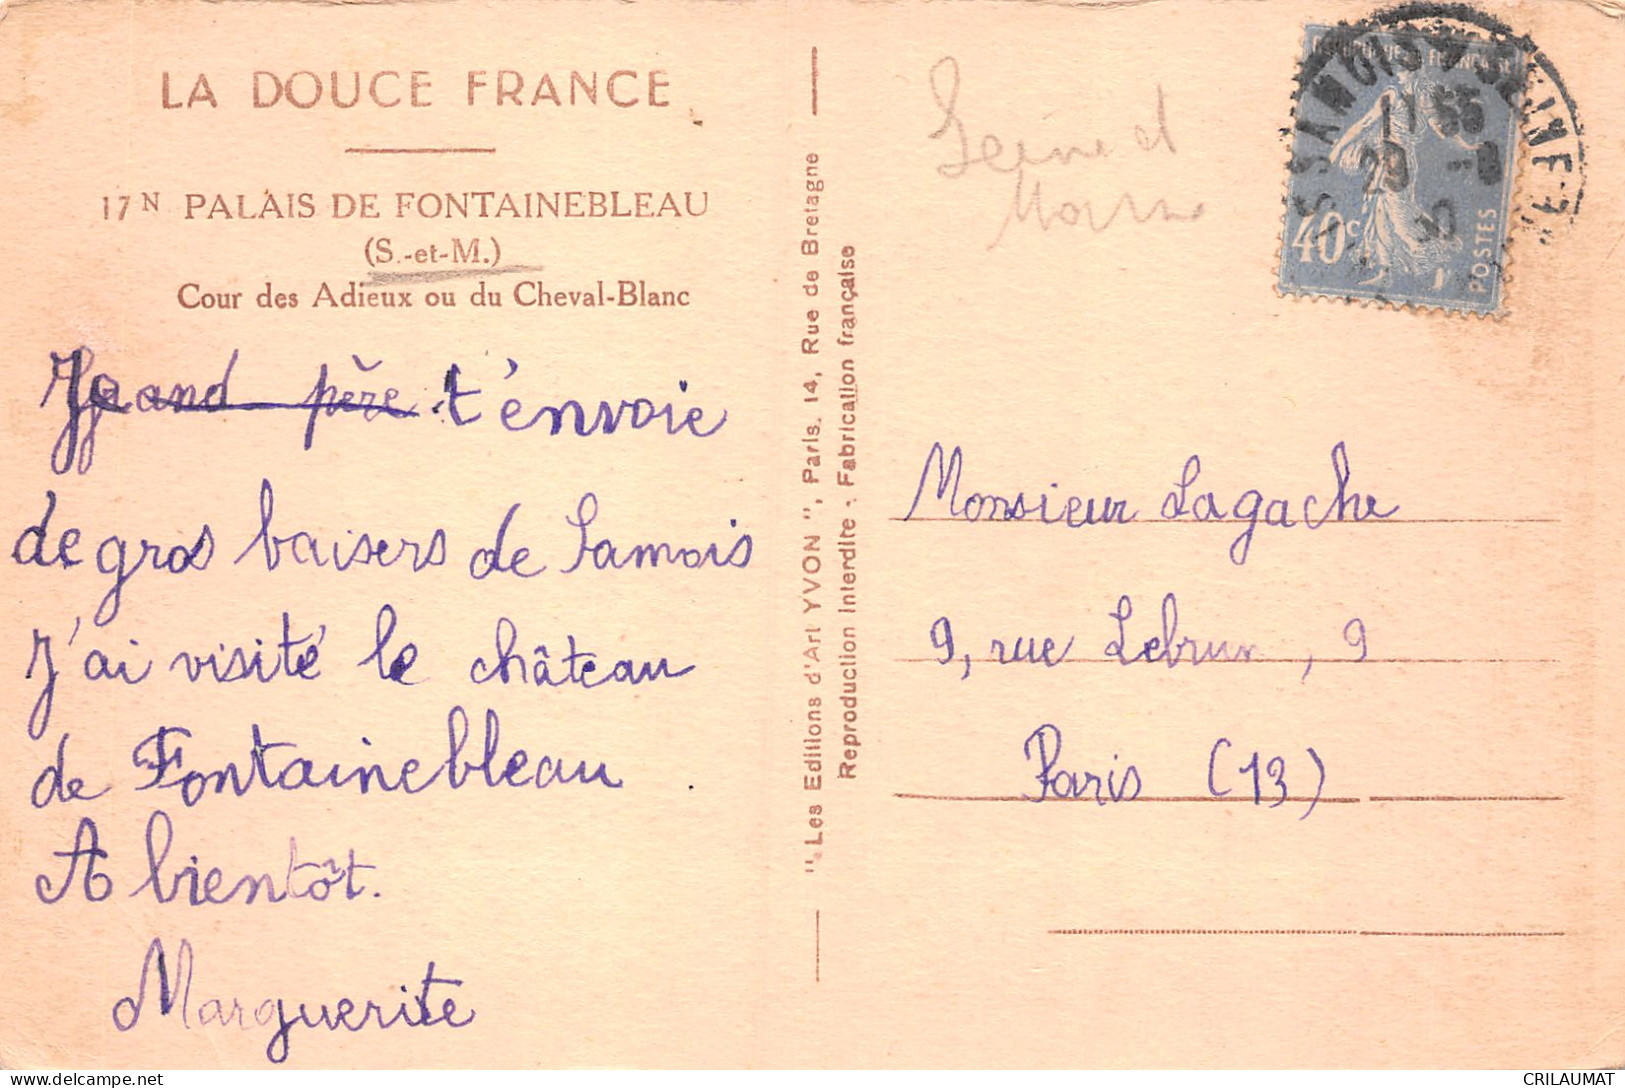 LA DOUCE FRANCE
17 N PALAIS DE FONTAINEBLEAU
(S.-et-M.)
Cour des Adieux ou du Cheval-Blanc
grand père t'envoie
de gros baisers de Samois
J'ai visité le château
de Fontainebleau
A bientôt.
Marguerite
"Les Editions d'Art YVON", Paris. 14, Rue de Bretagne
Reproduction Interdite - Fabrication française
Seine et
Marne
SAMOIS S SEINE
11 55
29 -8
40c
POSTES
Monsieur Lagache
9, rue Lebrun, 9
Paris (13)
CRILAUMAT